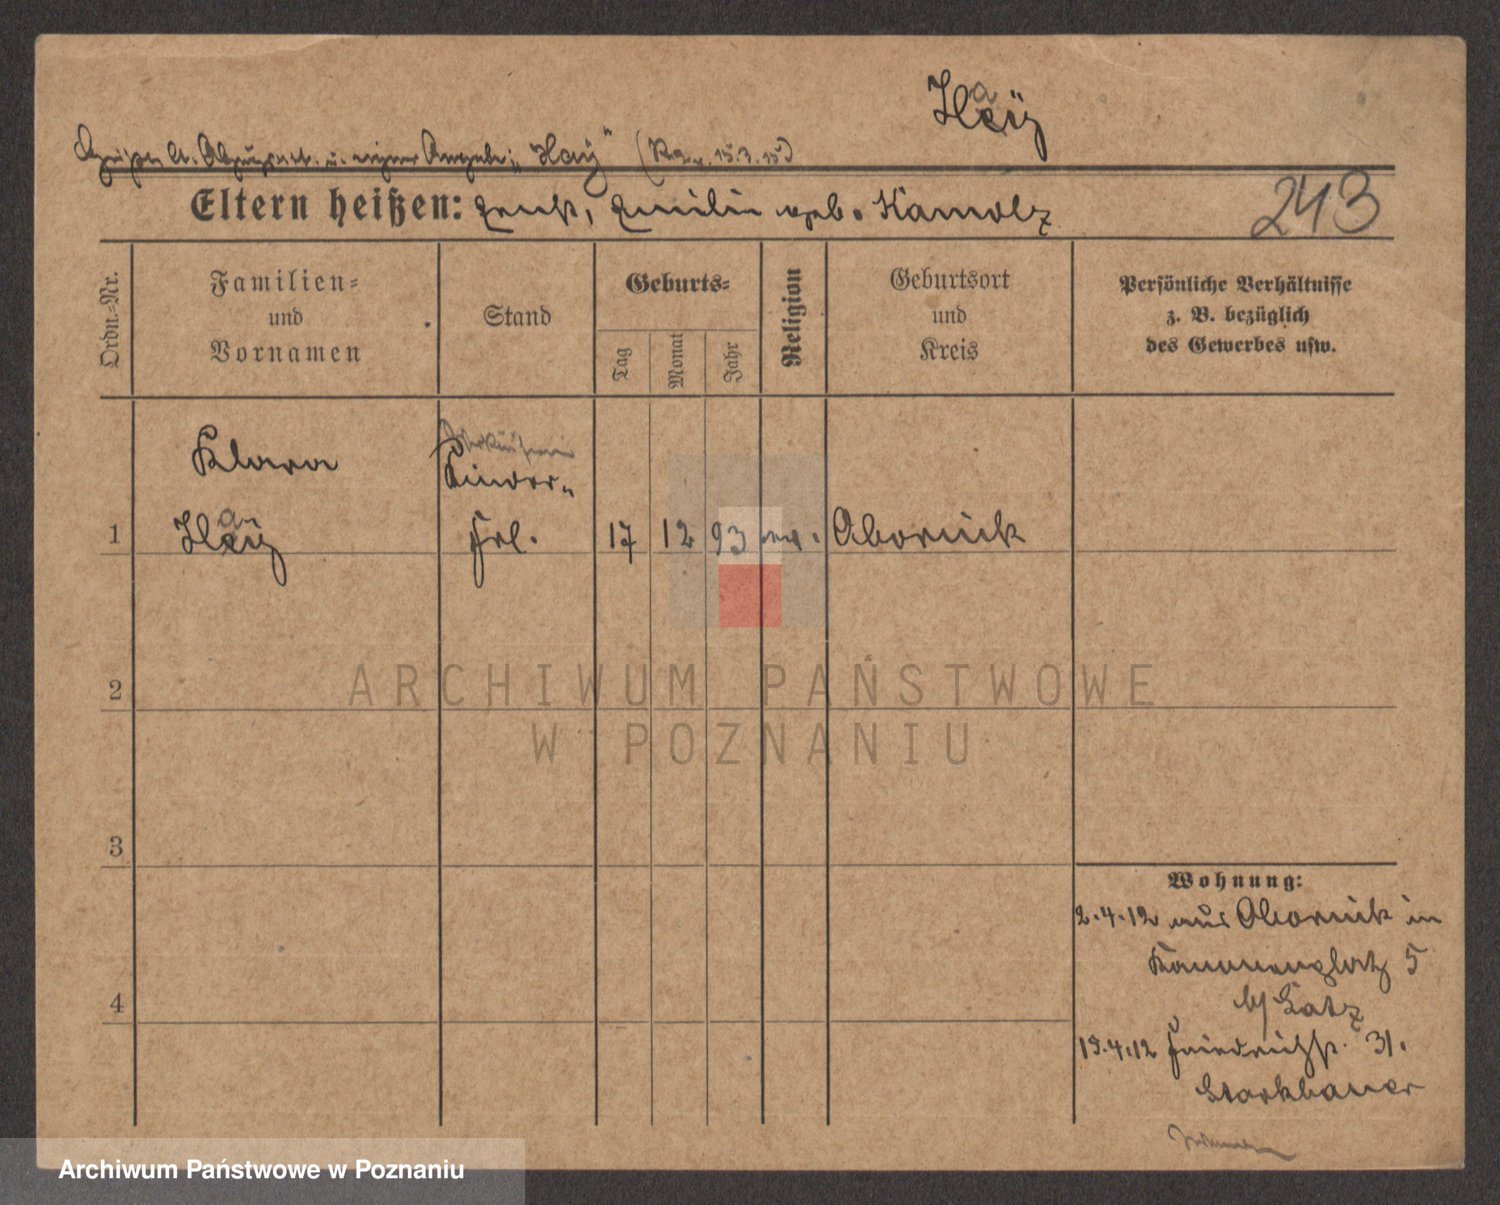 Haÿ
lt. u. eigner Angabe: „Haÿ" 15.3.15)
Eltern heißen: Emilie geb. Kamolz
243
Ordn.-Nr.
Familien-
und
Vornamen
Stand
Geburts-
Tag
Monat
Jahr
Religion
Geburtsort
und
Kreis
Persönliche Verhältnisse
z. B. bezüglich
des Gewerbes usw.
Klara
Verkäuferin
Kinder-
1 Haÿ Frl. 17 12 93 ev. Obornik
2
3
4
Wohnung:
2.4.12 aus Obornik in
Kannenplatz 5
b/ Latz
15.4.12 Friedrichstr. 31.
Starkbauer
ARCHIWUM PAŃSTWOWE
W POZNANIU
Archiwum Państwowe w Poznaniu